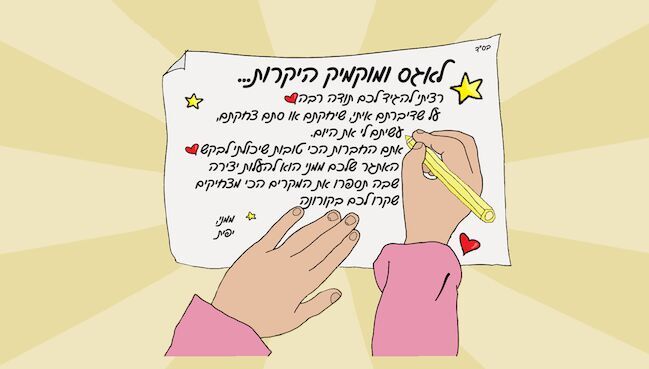 בס"ד
לאגס ומוקמיק היקרות...
רציתי להגיד לכם תודה רבה
על שדיברתם איתי, שיחקתם או סתם צחקתם,
עשיתם לי את היום.
אתם החברות הכי טובות שיכולתי לבקש
האתגר שלכם ממני הוא להעלות יצירה
שבה תספרו את המקרים הכי מצחיקים
שקרו לכם בקורונה
ממני
יפית